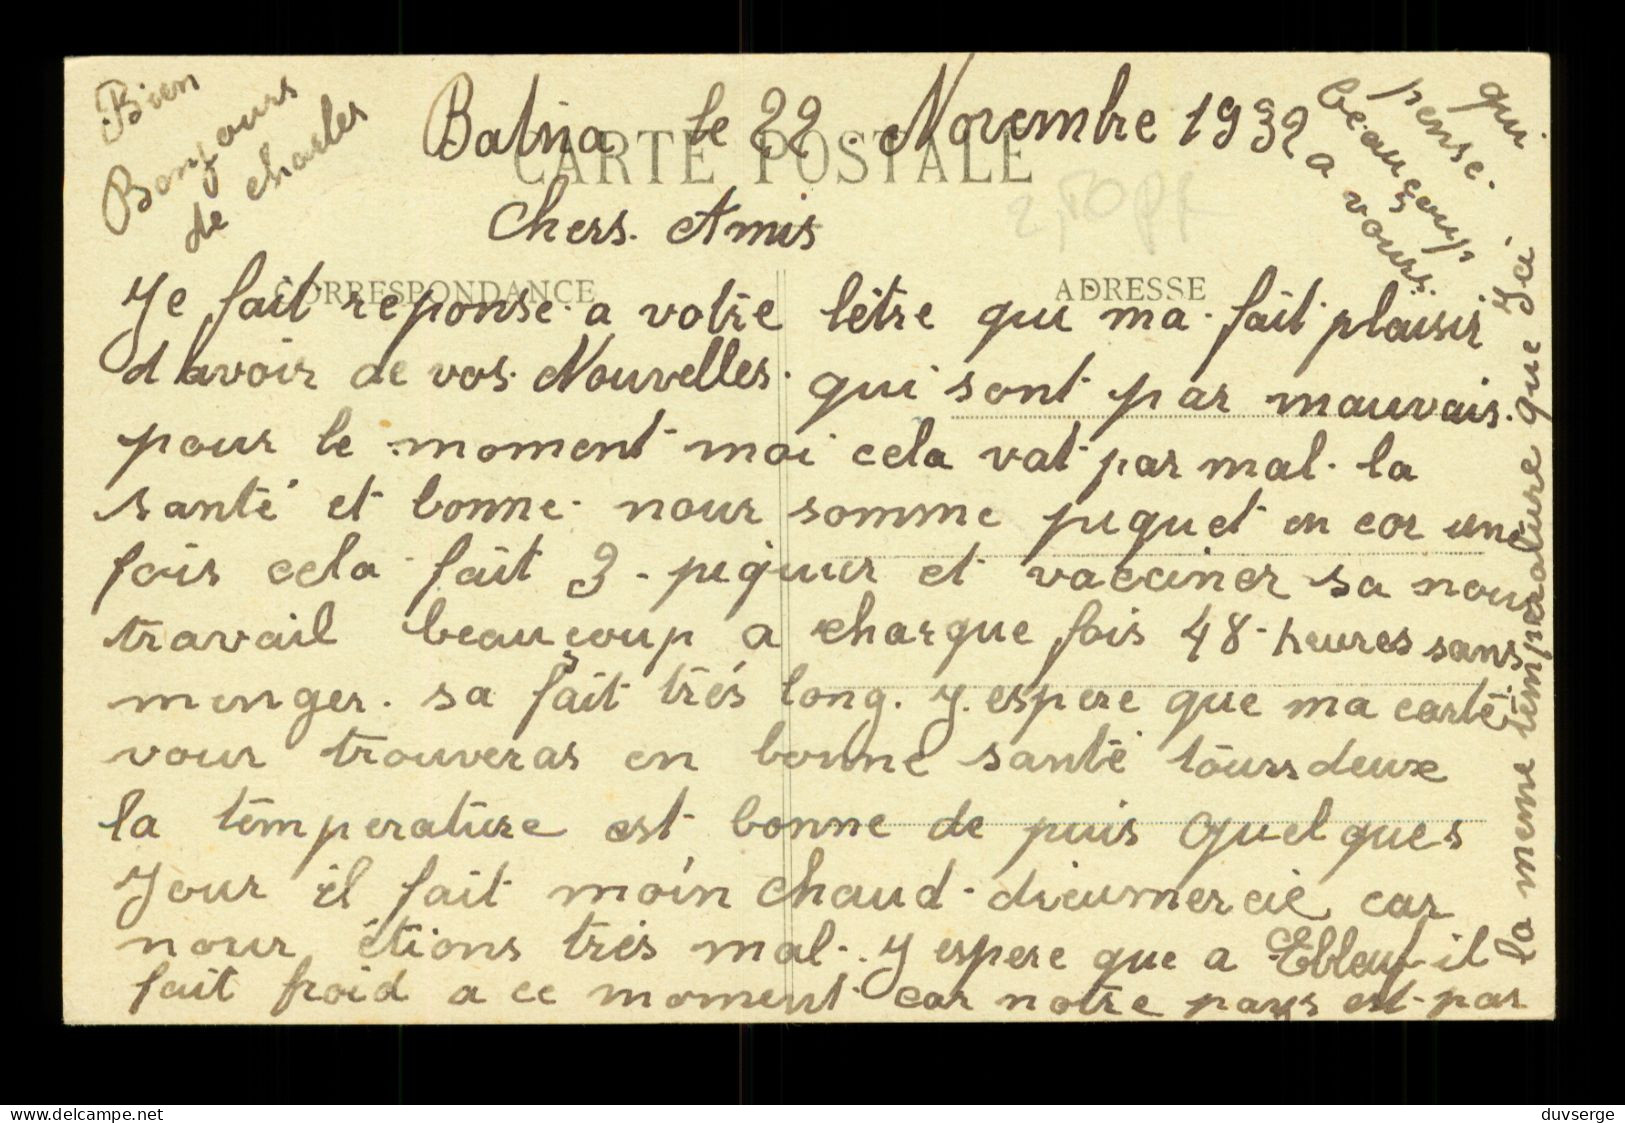 Batna le 22 Novembre 1932
CARTE POSTALE
2,50
Chers. Amis
CORRESPONDANCE
ADRESSE
Je fait reponse. a votre lêtre qui ma. fait plaisir
d avoir de vos. Nouvelles. qui sont par mauvais.
pour le moment moi cela vat par mal. la
santé et bonne. nour somme piquet en cor une
fois cela fait 3 - piquier et vacciner sa nour
travail beauçoup a charque fois 48 - heures sans
menger. sa fait trés long. J. espere que ma carte
vour trouveras en bonne santé tours deux
la température est bonne de puis quelques
Jour il fait moin chaud - dieumercie car
nour étions trés mal. J espere que a Eblay il
fait froid a ce moment car notre pays est par
la meme température que Ici
qui
pense.
beauçoup
a vours.
Bien
Bonjours
de charles
delcampe.net
duvserge